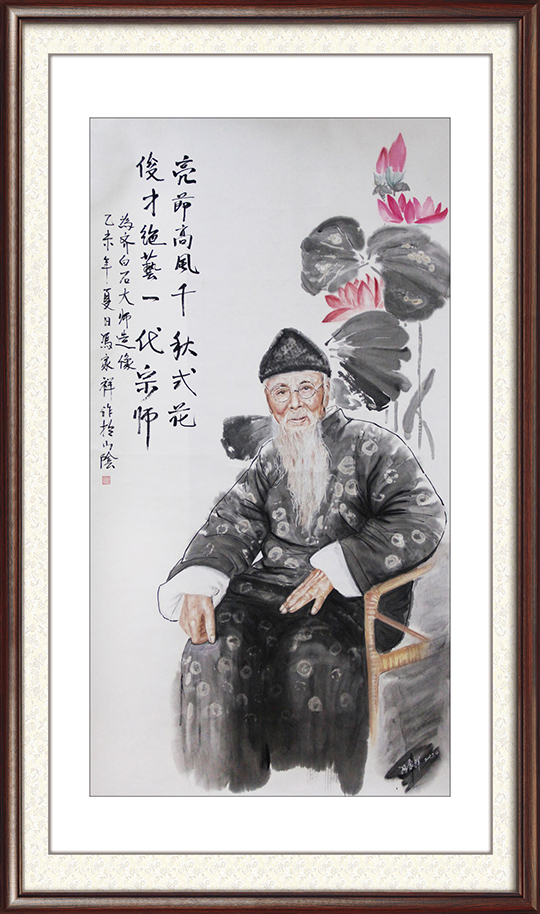 亮節高風千秋式范
俊才绝藝一代宗师
为齐白石大师造像
乙未年夏日馮家祥作於山陰